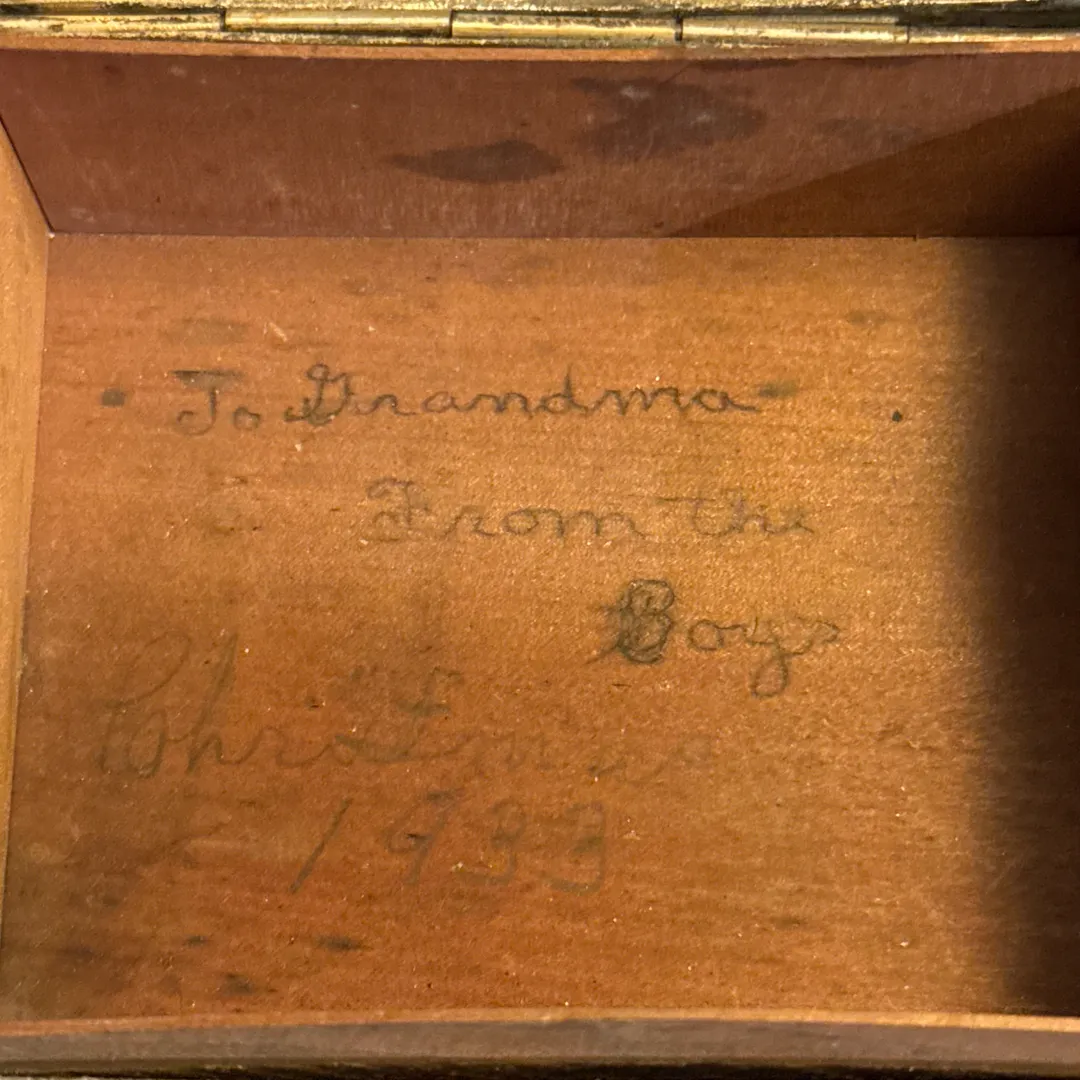 To Grandma
From the
Boys
Christmas
1933